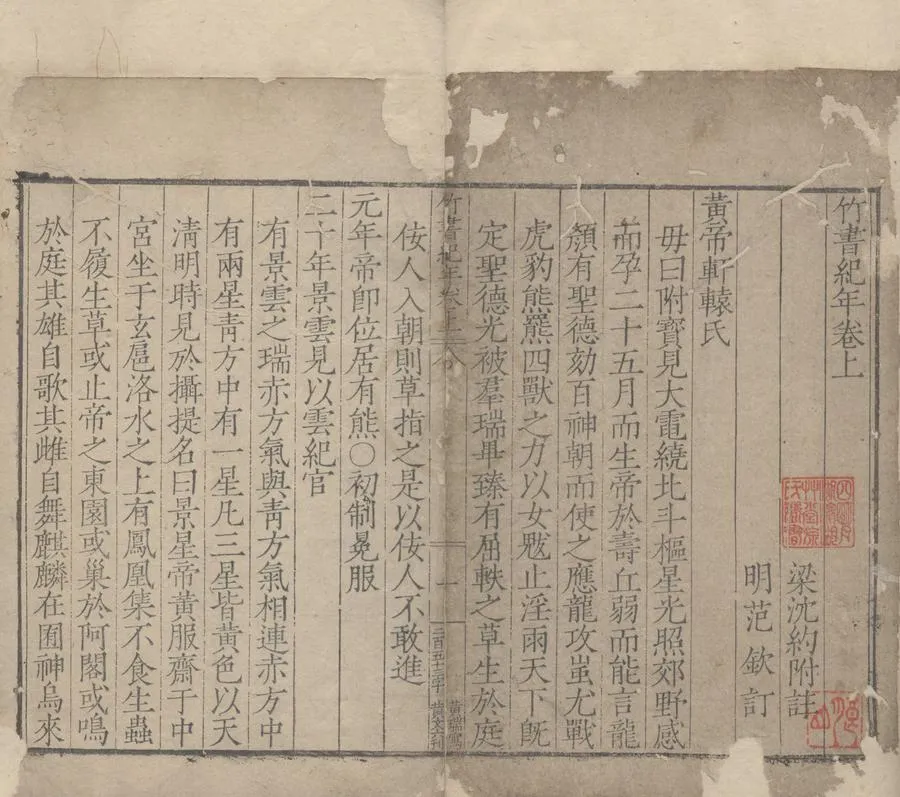 竹書紀年卷上
梁沈約附註
明范欽訂
黃帝軒轅氏
母曰附寶見大電繞北斗樞星光照郊野感
而孕二十五月而生帝於壽丘弱而能言龍
顏有聖德劾百神朝而使之應龍攻蚩尤戰
虎豹熊羆四獸之力以女魃止淫雨天下旣
定聖德光被羣瑞畢臻有屈軼之草生於庭
佞人入朝則草指之是以佞人不敢進
竹書紀年卷上
一
元年帝卽位居有熊○初制冕服
二十年景雲見以雲紀官
有景雲之瑞赤方氣與靑方氣相連赤方中
有兩星靑方中有一星凡三星皆黃色以天
淸明時見於攝提名曰景星帝黃服齋于中
宮坐于玄扈洛水之上有鳳凰集不食生蟲
不履生草或止帝之東園或巢於阿閣或鳴
於庭其雄自歌其雌自舞麒麟在囿神鳥來